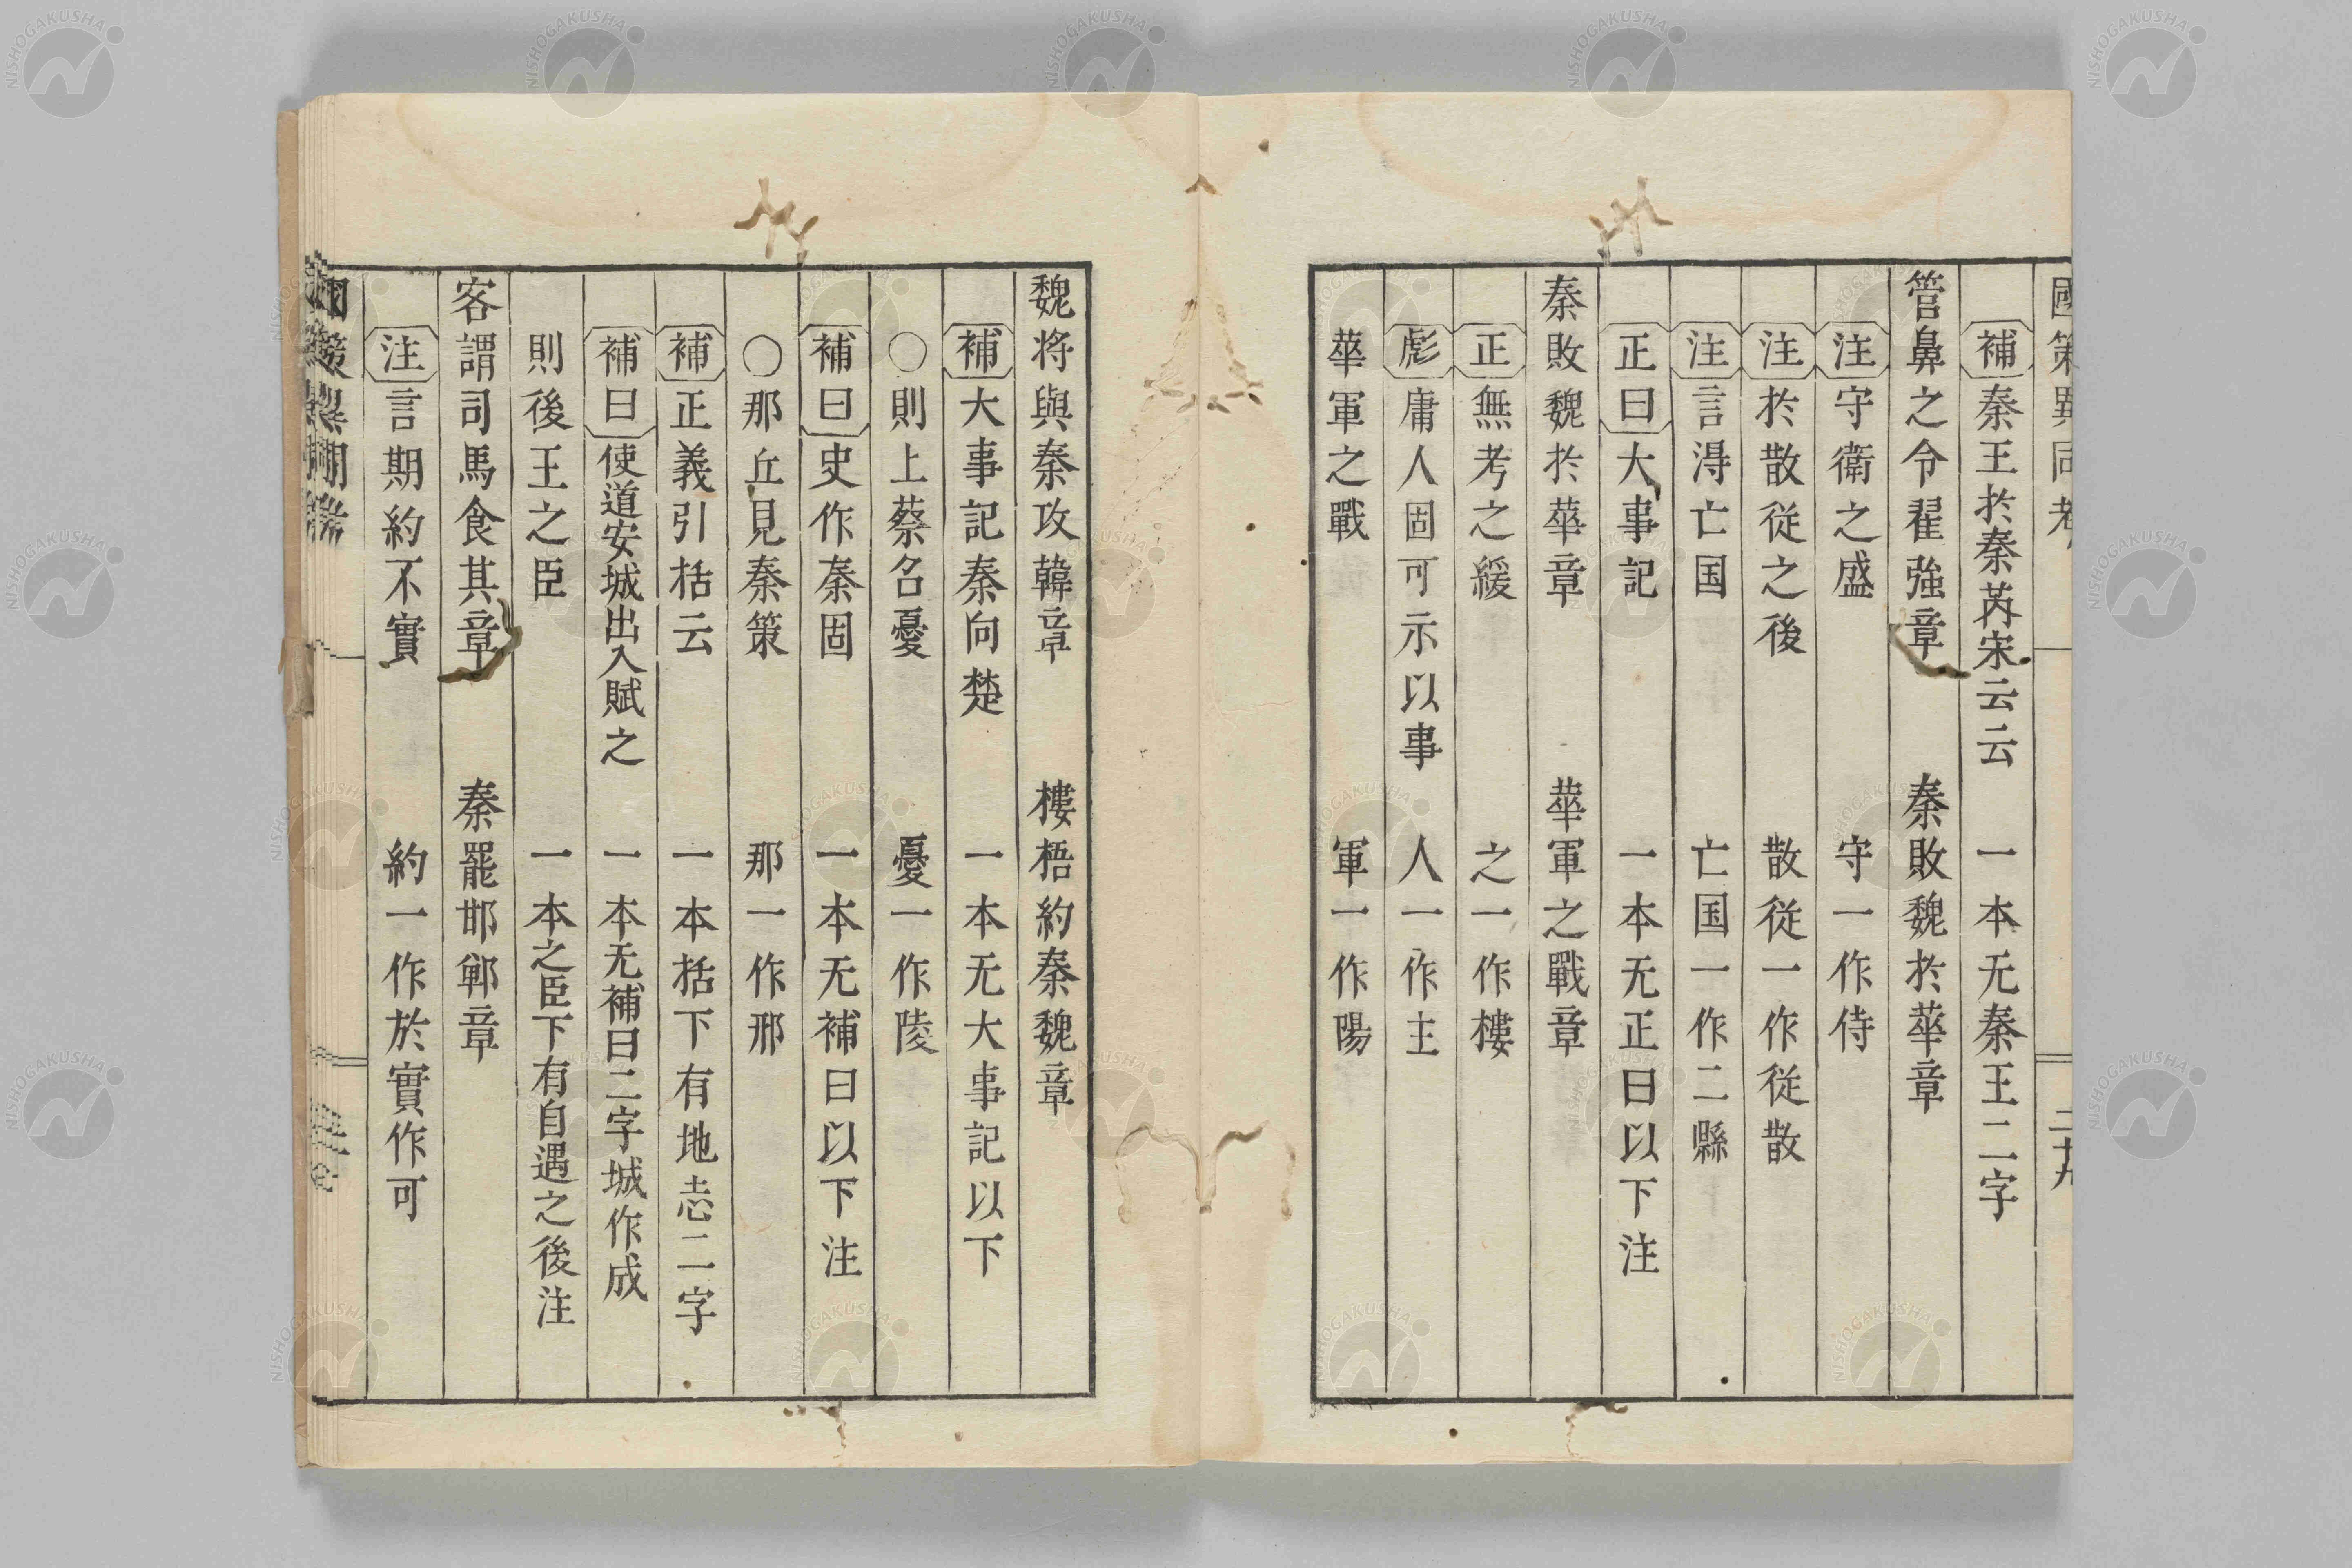 國策異同考
二十九
補秦王於秦芮宋云云　一本无秦王二字
管鼻之令翟強章　秦敗魏於華章
注守衛之盛　守一作侍
注於散從之後　散從一作從散
注言淂亡国　亡国一作二縣
正曰大事記　一本无正曰以下注
秦敗魏於華章　華軍之戰章
正無考之緩　之一作樓
彪庸人固可示以事　人一作主
華軍之戰　軍一作陽
魏将與秦攻韓章　樓梧約秦魏章
補大事記秦向楚　一本无大事記以下
○則上蔡召憂　憂一作陵
補曰史作秦固　一本无補曰以下注
○那丘見秦策　那一作邢
補正義引括云　一本括下有地志二字
補曰使道安城出入賦之　一本无補曰二字城作成
則後王之臣　一本之臣下有自遇之後注
客謂司馬食其章　秦罷邯鄲章
注言期約不實　約一作於實作可